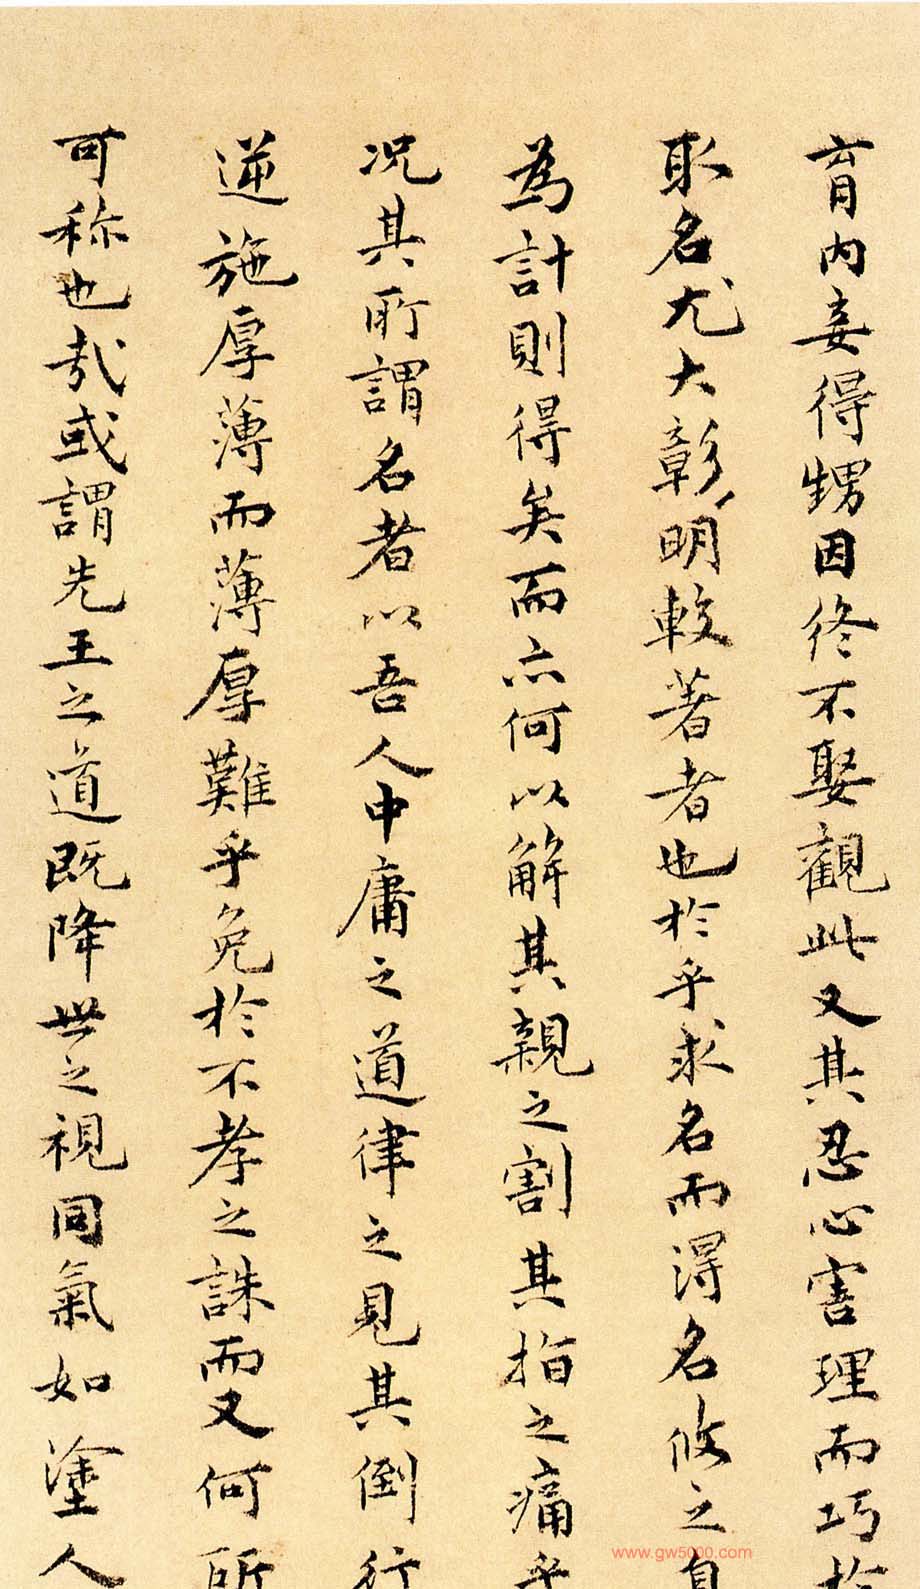 育内妾得甥因終不娶觀此又其忍心害理而巧於
取名尤大彰明較著者也於乎求名而得名攸之自
為計則得矣而亦何以解其親之割其指之痛乎
况其所謂名者以吾人中庸之道律之見其倒行
逆施厚薄而薄厚難乎免於不孝之誅而又何所
可称也哉或謂先王之道既降世之視同氣如塗人
www.gw5000.com